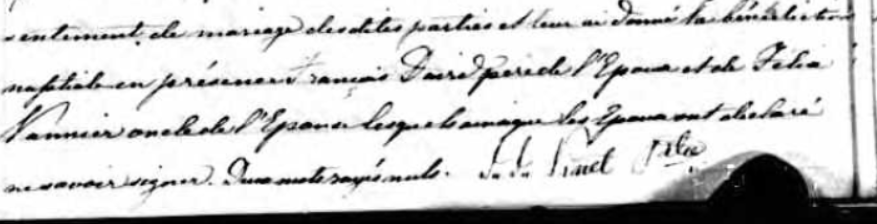 sentement de mariage desdites parties et leur ai donné la bénédiction
nuptiale en présence François David père de l'Epoux et de Félix
Vannier oncle de l'Epouse lesquels ainsi que les Epoux ont déclaré
ne savoir signer. Deux mots rayés nuls. Pinel Ptre